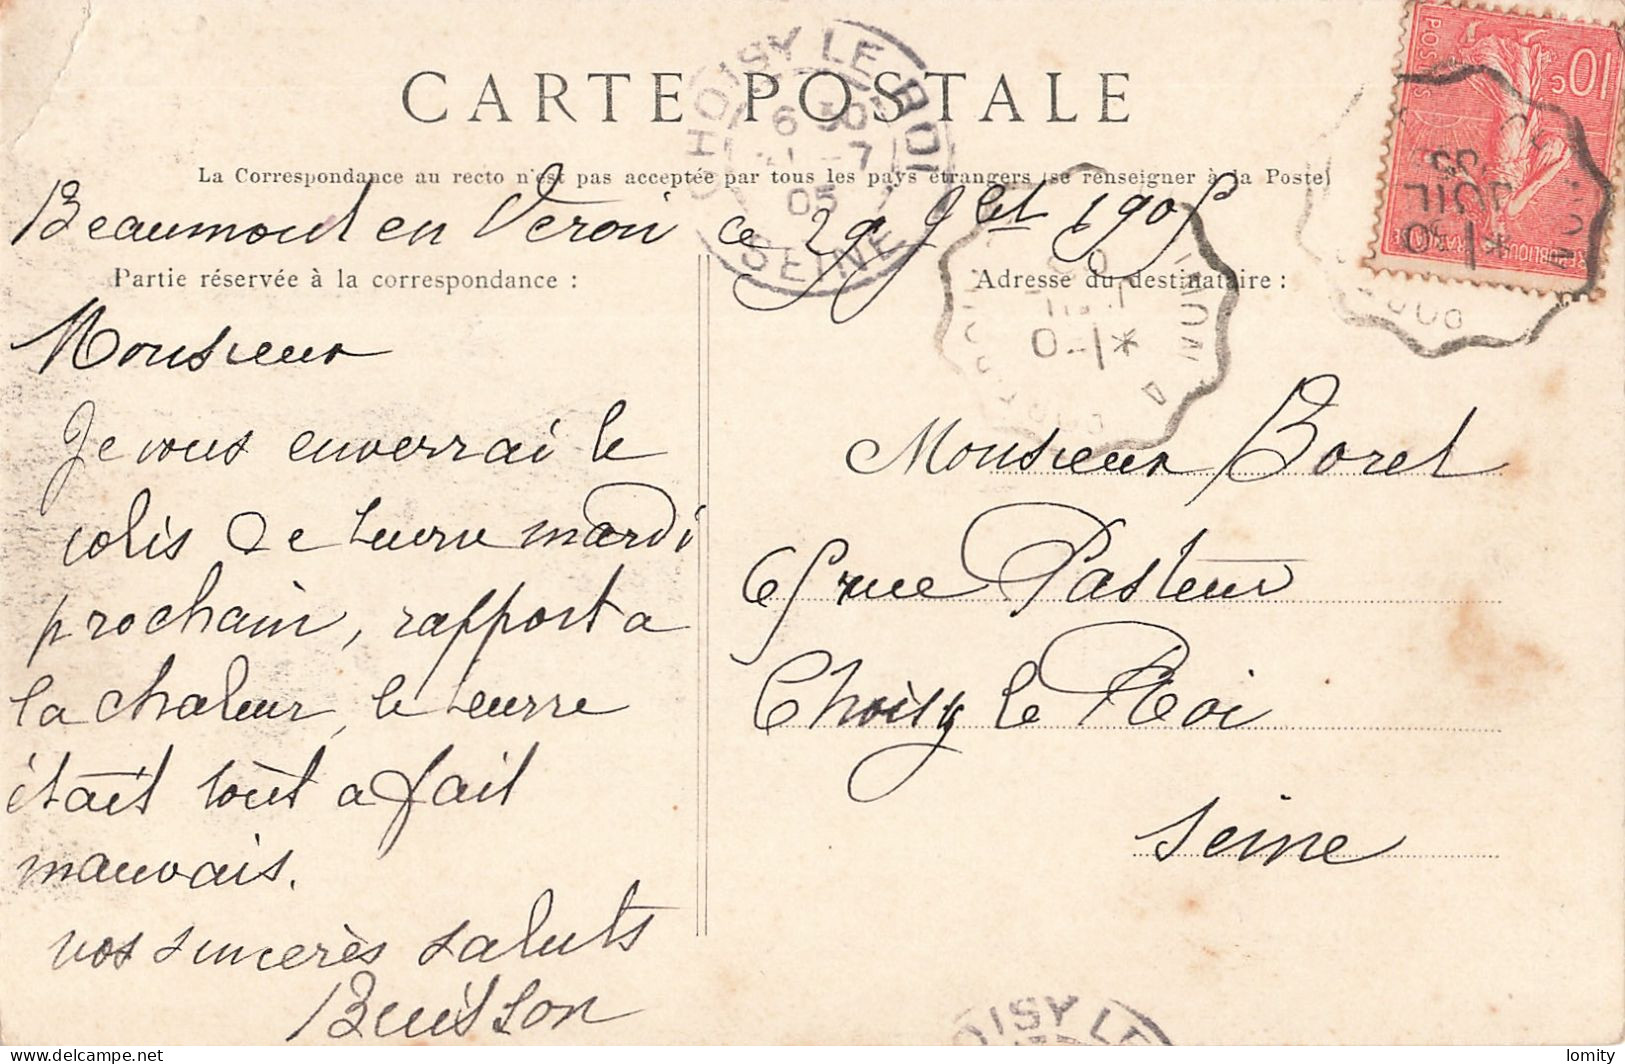 CARTE POSTALE
La Correspondance au recto n'est pas acceptée par tous les pays étrangers (se renseigner à la Poste)
Beaumont en Veron ce 29 Jlet 1905
Partie réservée à la correspondance :
Monsieur
Je vous enverrai le
colis de beurre mardi
prochain, rapport a
la chaleur, le beurre
était tout a fait
mauvais.
vos sincerès saluts
Buisson
Adresse du destinataire :
Monsieur Borel
65 rue Pasteur
Choisy le Roi
Seine
CHOISY LE ROI
6 30
7
05
SEINE
10 c
POSTES
REPUBLIQUE FRANÇAISE
JUIL
05
OISY LE
lomity
delcampe.net